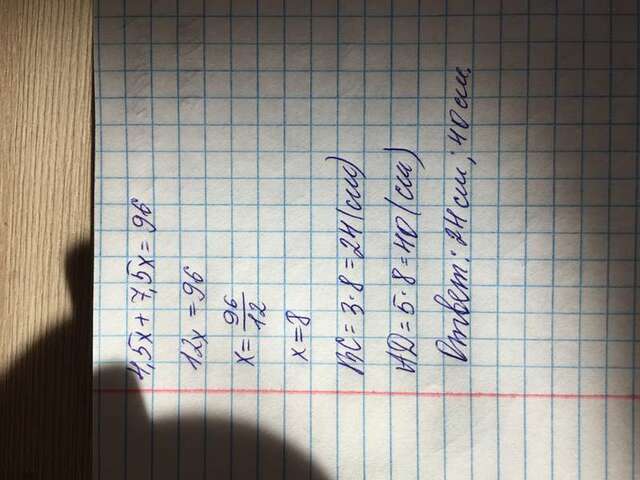 4,5x + 7,5x = 96
12x = 96
x = 96/12
x = 8
BC = 3 · 8 = 24 (см)
AD = 5 · 8 = 40 (см)
Ответ: 24 см; 40 см.